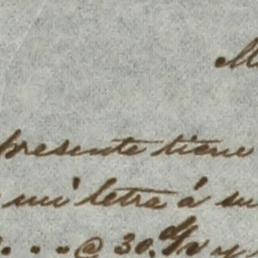 M
presente tiene
mi letra á su
@ 30. d/v y